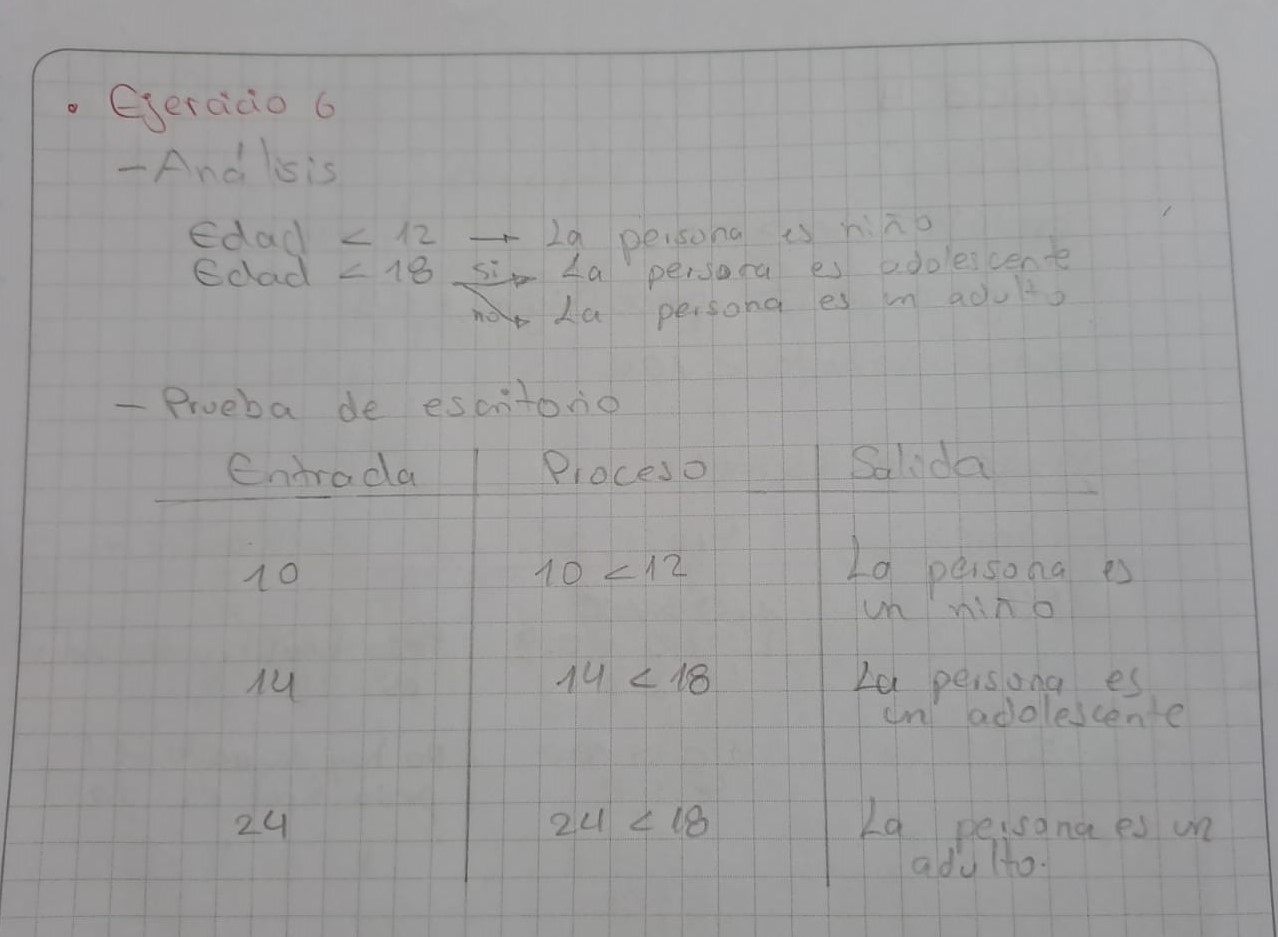 • Ejercicio 6
- Análisis
Edad < 12 → La persona es niño
Edad < 18 si→ La persona es adolescente
no→ La persona es un adulto
- Prueba de escritorio
Entrada | Proceso | Salida
10 | 10 < 12 | La persona es
un niño
14 | 14 < 18 | La persona es
un adolescente
24 | 24 < 18 | La persona es un
adulto.